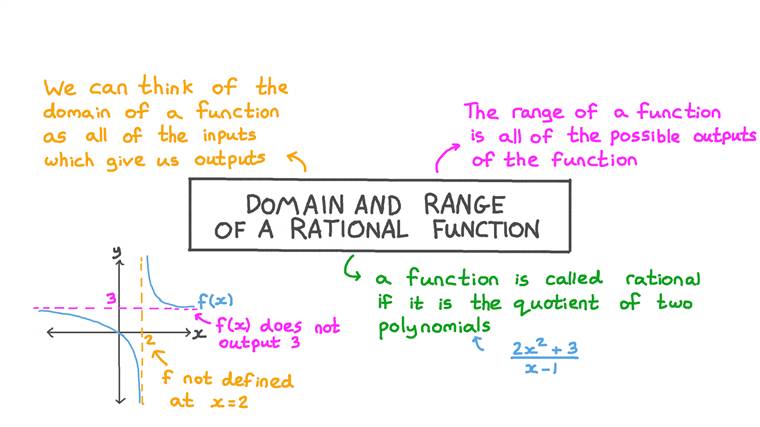 We can think of the
domain of a function
as all of the inputs
which give us outputs
The range of a function
is all of the possible outputs
of the function
DOMAIN AND RANGE
OF A RATIONAL FUNCTION
a function is called rational
if it is the quotient of two
polynomials
2x² + 3
x - 1
y
3
f(x)
x
f(x) does not
output 3
2
f not defined
at x = 2